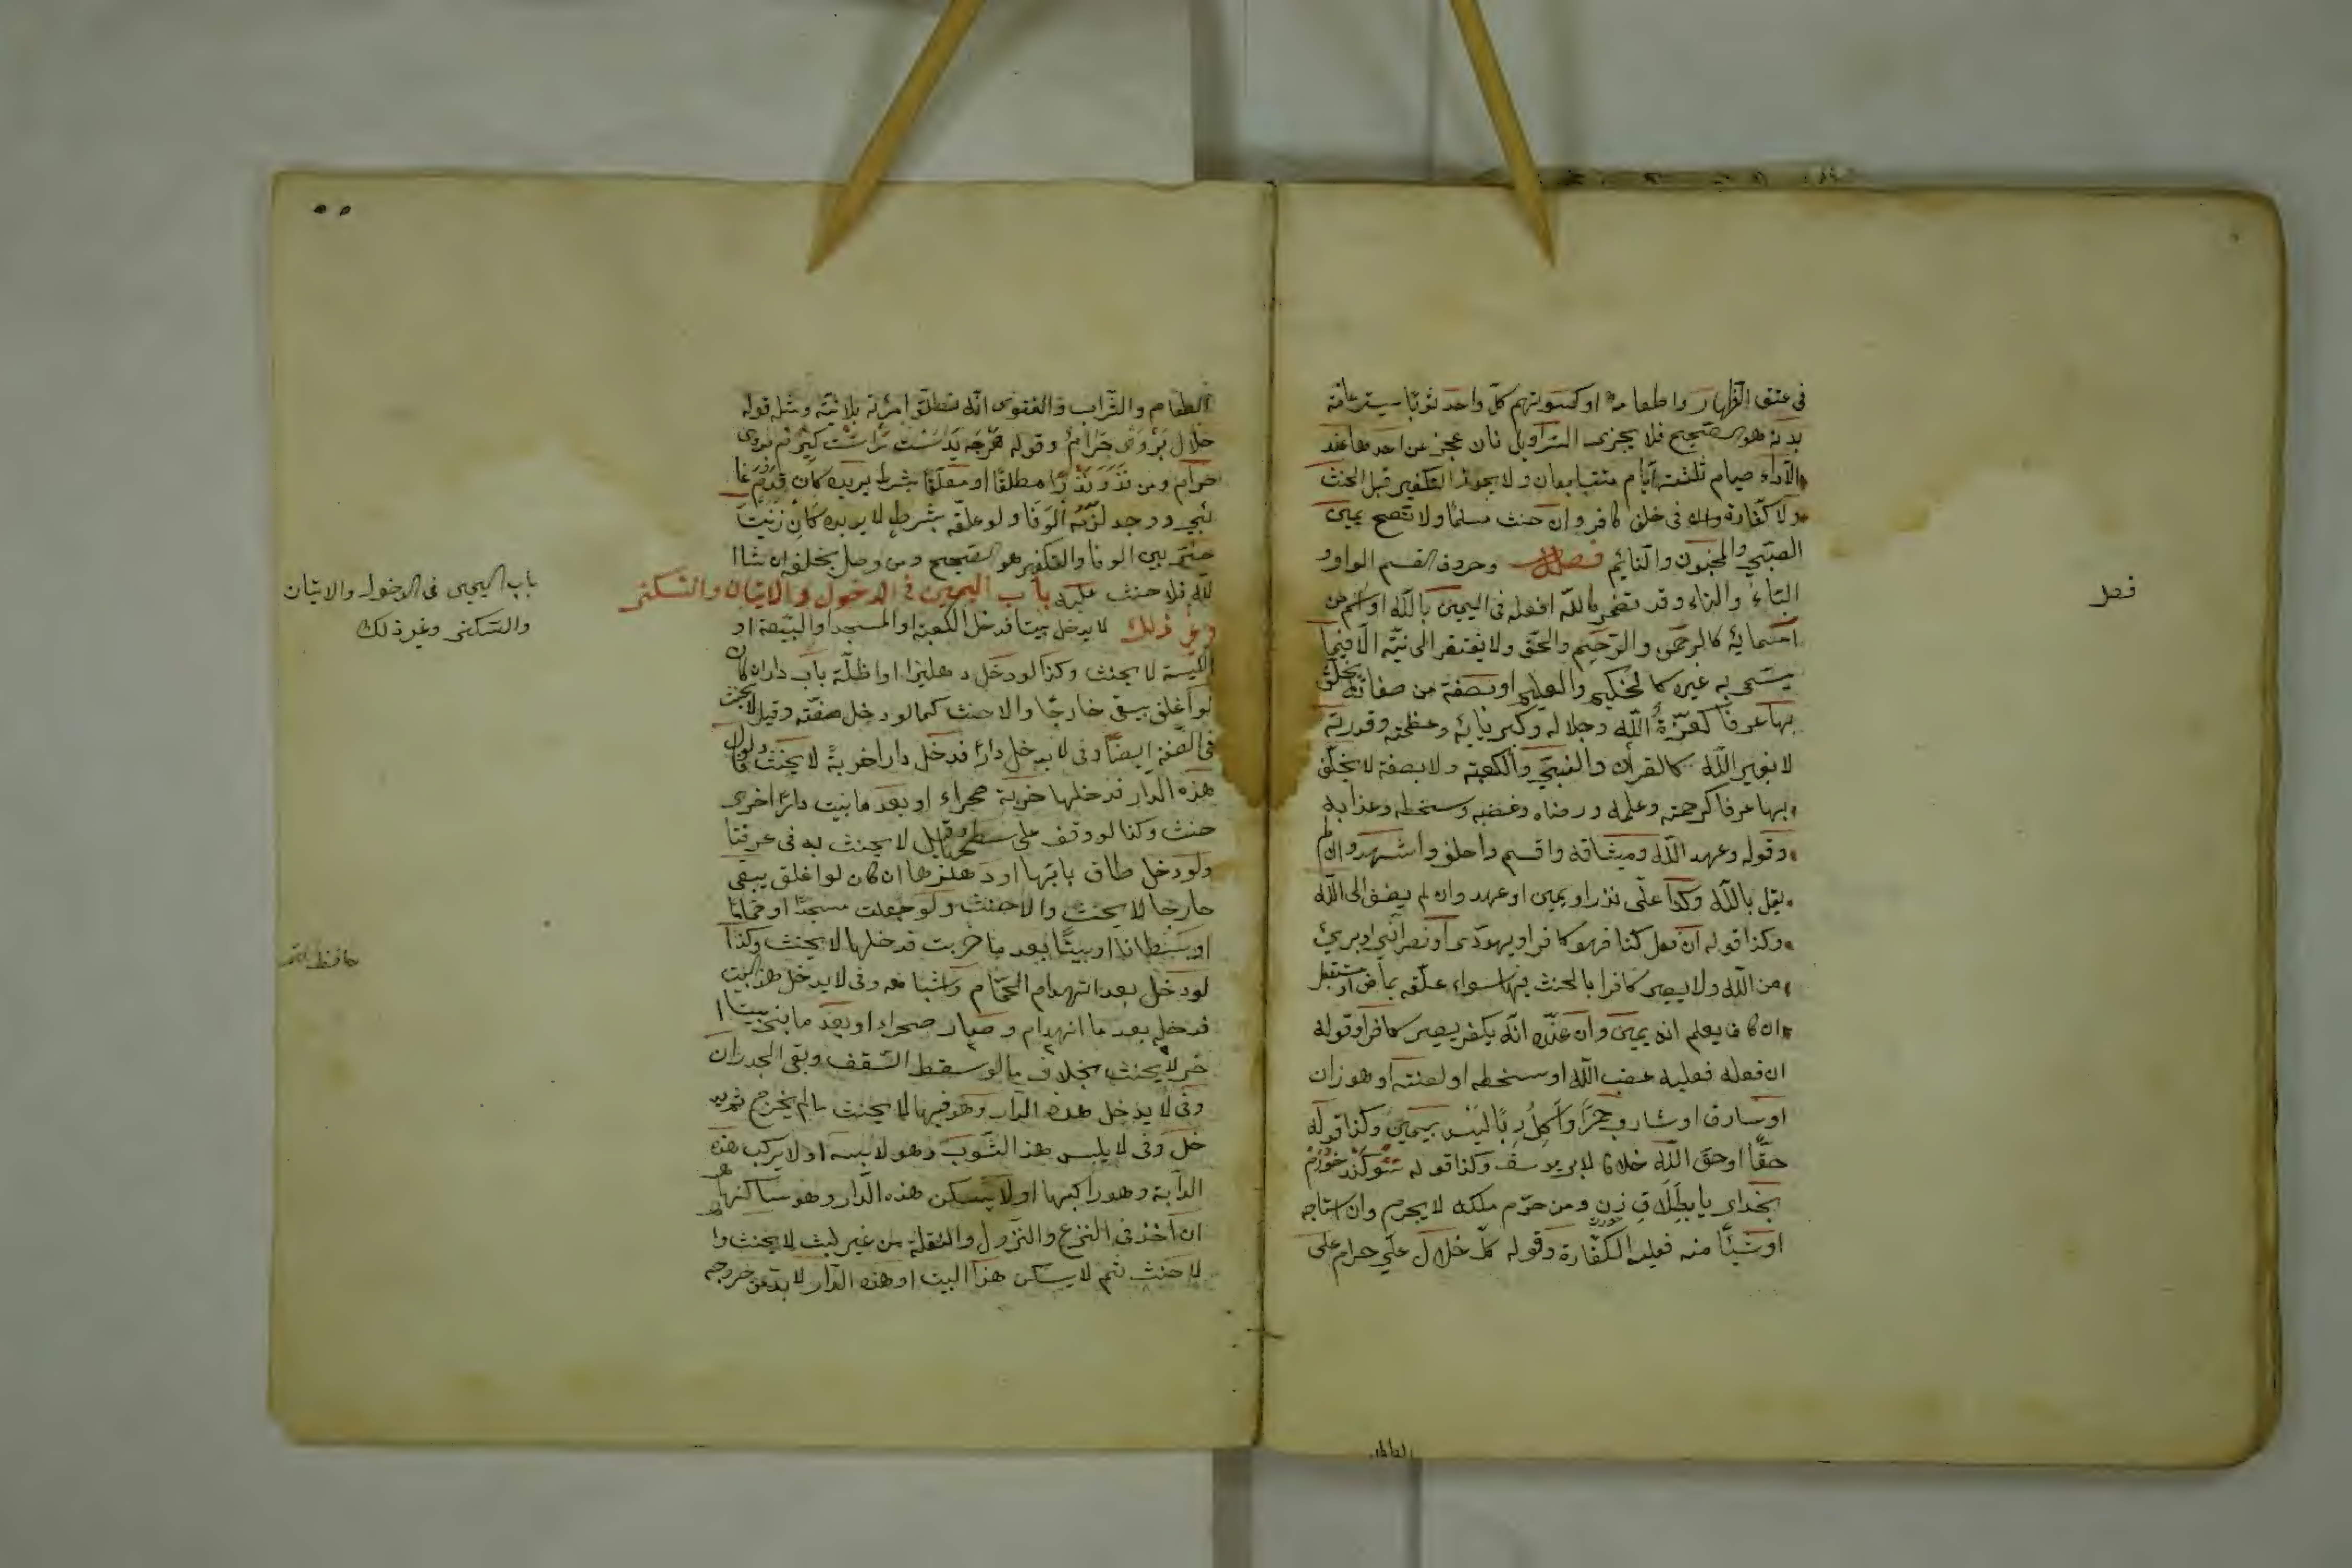 في عتق الظهار واطعامه او كسوتهم كل واحد ثوبا يستر عامة
بدنه هو الصحيح فلا يجزى السراويل فان عجز عن احدها عند
الاداء صيام ثلثة ايام متتابعات ولا يجوز التكفير قبل الحنث
ولا كفارة في حلف كافر وان حنث مسلما ولا تصح يمين
الصبي والمجنون والنايم فصل وحروف القسم الواو و
التاء والباء وقد تضمر بالله افعله في اليمين بالله او اسم من
اسمايه كالرحمن والرحيم والحق ولا يفتقر الى نية الا فيما
يسمى به غيره كالحكيم والعليم او بصفة من صفاته يحلف
بها عرفا كعزة الله وجلاله وكبريايه وعظمته وقدرته
لا بغير الله كالقرأن والنبي والكعبة ولا بصفة لا يحلف
بها عرفا كرحمته وعلمه ورضاه وغضبه وسخطه وعذابه
وقوله وعهد الله وميثاقه واقسم واحلف واشهد وان لم
يقل بالله وكذا على نذر او يمين او عهد وان لم يضف الى الله
وكذا قوله ان فعل كذا فهو كافر او يهودى او نصراني او برئ
من الله ولا يصير كافرا بالحنث فيها سواء علقه بماض او مستقبل
ان كان يعلم انه يمين وان عنده انه يكفر يصير كافرا وقوله
ان فعله فعليه غضب الله او سخطه او لعنته او هو زان
او سارق او شارب خمر او اكل ربا ليس بيمين وكذا قوله
حقا او حق الله خلافا لابى يوسف وكذا قوله سوكند خورم
بخداى يا بطلاق زن ومن حرم ملكه لا يحرم وان استباحه
او شيئا منه فعليه الكفارة وقوله كل حلال على حرام على
فصل
الطعام والشراب والفتوى انه تطلق امرأته بلا نية ومثله قوله
حلال بروى حرام وقوله هرچه بدست راست كيرم بروى
حرام ومن نذر نذرا مطلقا او معلقا بشرط يريده كان قدم غا
ئبي ووجد لزمه الوفا ولو علقه بشرط لا يريده كان زنيت
خير بين الوفا والتكفير هو الصحيح ومن وصل بحلفه ان شاا
لله فلا حنث عليه باب اليمين في الدخول والاتيان والسكنى
وغير ذلك لا يدخل بيتا فدخل الكعبة او المسجد او البيعة او
الكنيسة لا يحنث وكذا لو دخل دهليزا او ظلة باب دار ان كان
لو اغلق يبقى خارجا والا حنث كما لو دخل صفته وقيل لا يحنث
في الصفة ايضا وفى لا يدخل دارا فدخل دارا خربة لا يحنث ولو قال
هذه الدار فدخلها خربة صحراء او بعد ما بنيت دارا اخرى
حنث وكذا لو وقف على سطحها وقيل لا يحنث به في عرفنا
ولو دخل طاق بابها او دهليزها ان كان لو اغلق يبقى
خارجا لا يحنث والا حنث ولو جعلت مسجدا او حماما
او بستانا او بيتا بعد ما خربت فدخلها لا يحنث وكذا
لو دخل بعد انهدام الحمام واشباهه وفى لا يدخل هذا البيت
فدخله بعد ما انهدام وصار صحراء او بعد ما بنى بيتا ا
خر لا يحنث بخلاف ما لو سقط السقف وبقى الجدران
وفى لا يدخل هذه الدار وهو فيها لا يحنث ما لم يخرج ثم يد
خل وفى لا يلبس هذا الثوب وهو لابسه او لا يركب هذه
الدابة وهو راكبها او لا يسكن هذه الدار وهو ساكنها
ان اخذ في النزع والنزول والنقلة من غير لبث لا يحنث وا
لا حنث ثم لا يسكن هذا البيت او هذه الدار لا بد من خروجه
باب اليمين في الدخول والاتيان
والسكنى وغير ذلك